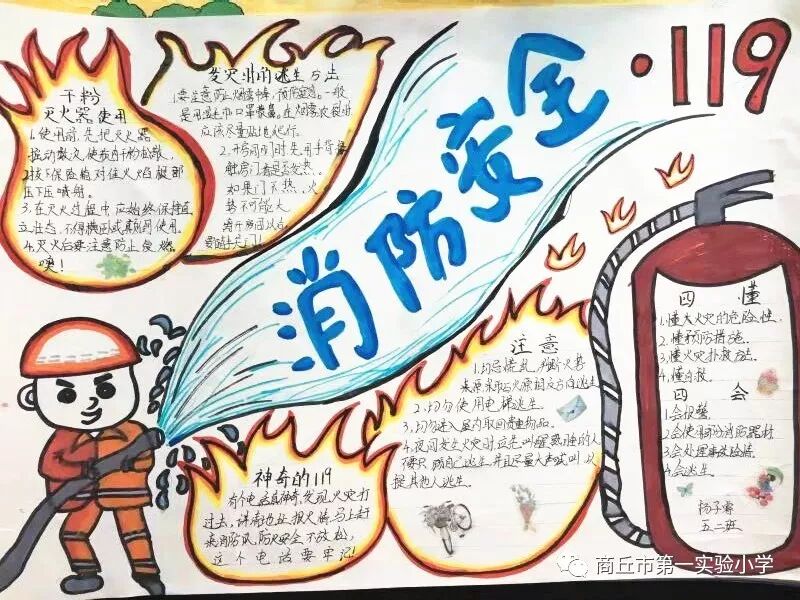 ·119
消防安全
干粉
灭火器使用
1.使用前,先把灭火器
数次,使干粉松散,
2.拔下保险 对准火焰根部
压下压喷射。
3.在灭火过程中应始终保持直
立状态,不得横卧或颠倒使用。
4.灭火后要注意防止复燃
噢!
发火时的逃生方法
1.要注意防止烟雾中毒,预防窒息。一般
是用湿毛巾口罩蒙鼻。在烟雾
应该尽量贴地爬行。
2.开房间门时先用手背
触房门看是否发热。
如果门不热,火
势不可能大
离开房间以后
要随手关门!
神奇的119
有个电话真神奇,发现火灾打
过去,讲清地址报火情,马上赶
来消防队,防火安全不放松,
这个电话要牢记!
注意
1.切忌慌乱,判断火势
来源,采取与火源相反方向逃生
2.切勿使用电梯逃生。
3.切勿进入屋内取回贵重物品。
4.夜间发生火灾时,应先叫醒熟睡的人
不要只顾自己逃生,并且尽量大声喊叫,以
提其他人逃生。
四懂
1.懂火灾的危险性.
2.懂预防措施.
3.懂火灾扑救方法.
4.懂自救.
四会
1.会报警
2.会使用部分消防器材.
3.会处理事故险情.
4.会逃生.
杨子睿
五二班
商丘市第一实验小学